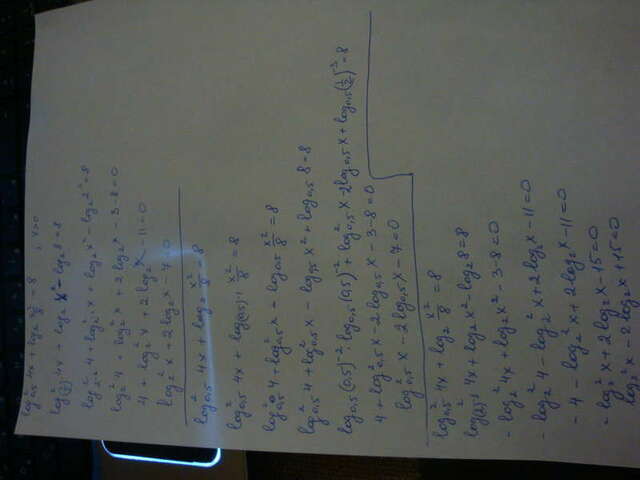 log²₀,₅ 4x + log₂ x²/8 = 8 , x>0
log²₍₂₎₋₁ 4x + log₂ x² - log₂ 8 = 8
log²₂₋₁ 4 + log²₂₋₁ x + log₂ x² - log₂ 2³ = 8
log²₂ 4 + log²₂ x + 2 log₂ x - 3 - 8 = 0
4 + log²₂ x + 2 log₂ x - 11 = 0
log²₂ x + 2 log₂ x - 7 = 0
log²₀,₅ 4x + log₂ x²/8 = 8
log²₀,₅ 4x + log₍₀,₅₎₋₁ x²/8 = 8
log²₀,₅ 4 + log²₀,₅ x - log₀,₅ x²/8 = 8
log²₀,₅ 4 + log²₀,₅ x - log₀,₅ x² + log₀,₅ 8 = 8
log₀,₅ (0,5)⁻² log₀,₅ (0,5)⁻² + log²₀,₅ x - 2 log₀,₅ x + log₀,₅ (1/2)⁻³ = 8
4 + log²₀,₅ x - 2 log₀,₅ x - 3 - 8 = 0
log²₀,₅ x - 2 log₀,₅ x - 7 = 0
log²₀,₅ 4x + log₂ x²/8 = 8
log²₍₂₎₋₁ 4x + log₂ x² - log₂ 8 = 8
- log²₂ 4x + log₂ x² - 3 - 8 = 0
- log²₂ 4 - log²₂ x + 2 log₂ x - 11 = 0
- 4 - log²₂ x + 2 log₂ x - 11 = 0
- log²₂ x + 2 log₂ x - 15 = 0
log²₂ x - 2 log₂ x + 15 = 0